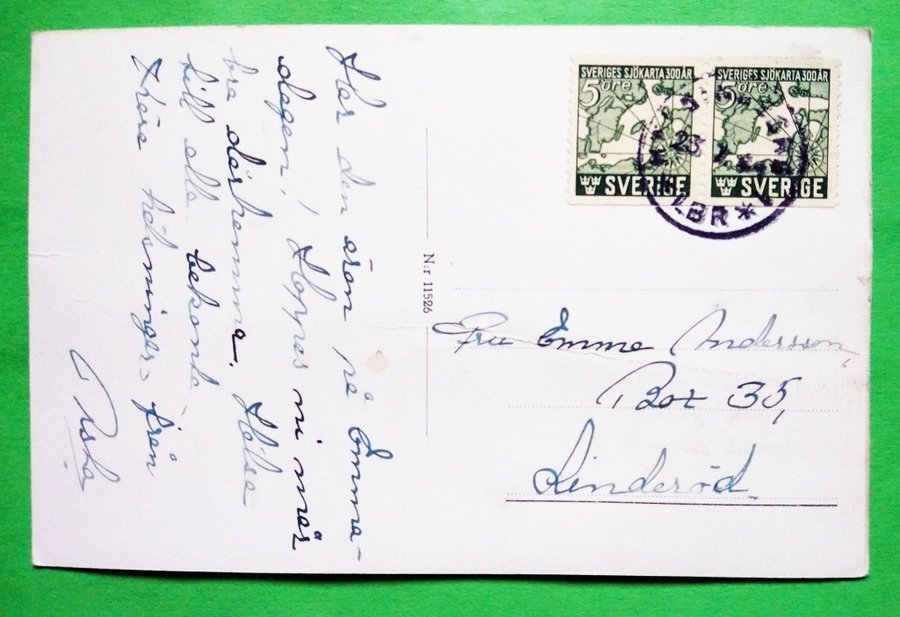 Har den äran på Emma-
dagen, Hoppas ni mår
bra därhemma. Hälsa
till alla bekanta
Kära hälsningar från
N:r 11526
SVERIGES SJÖKARTA 300 ÅR
5 öre
SVERIGE
SVERIGES SJÖKARTA 300 ÅR
5 öre
SVERIGE
23
LBR
Fru Emma Andersson,
Box 35,
Linderöd.